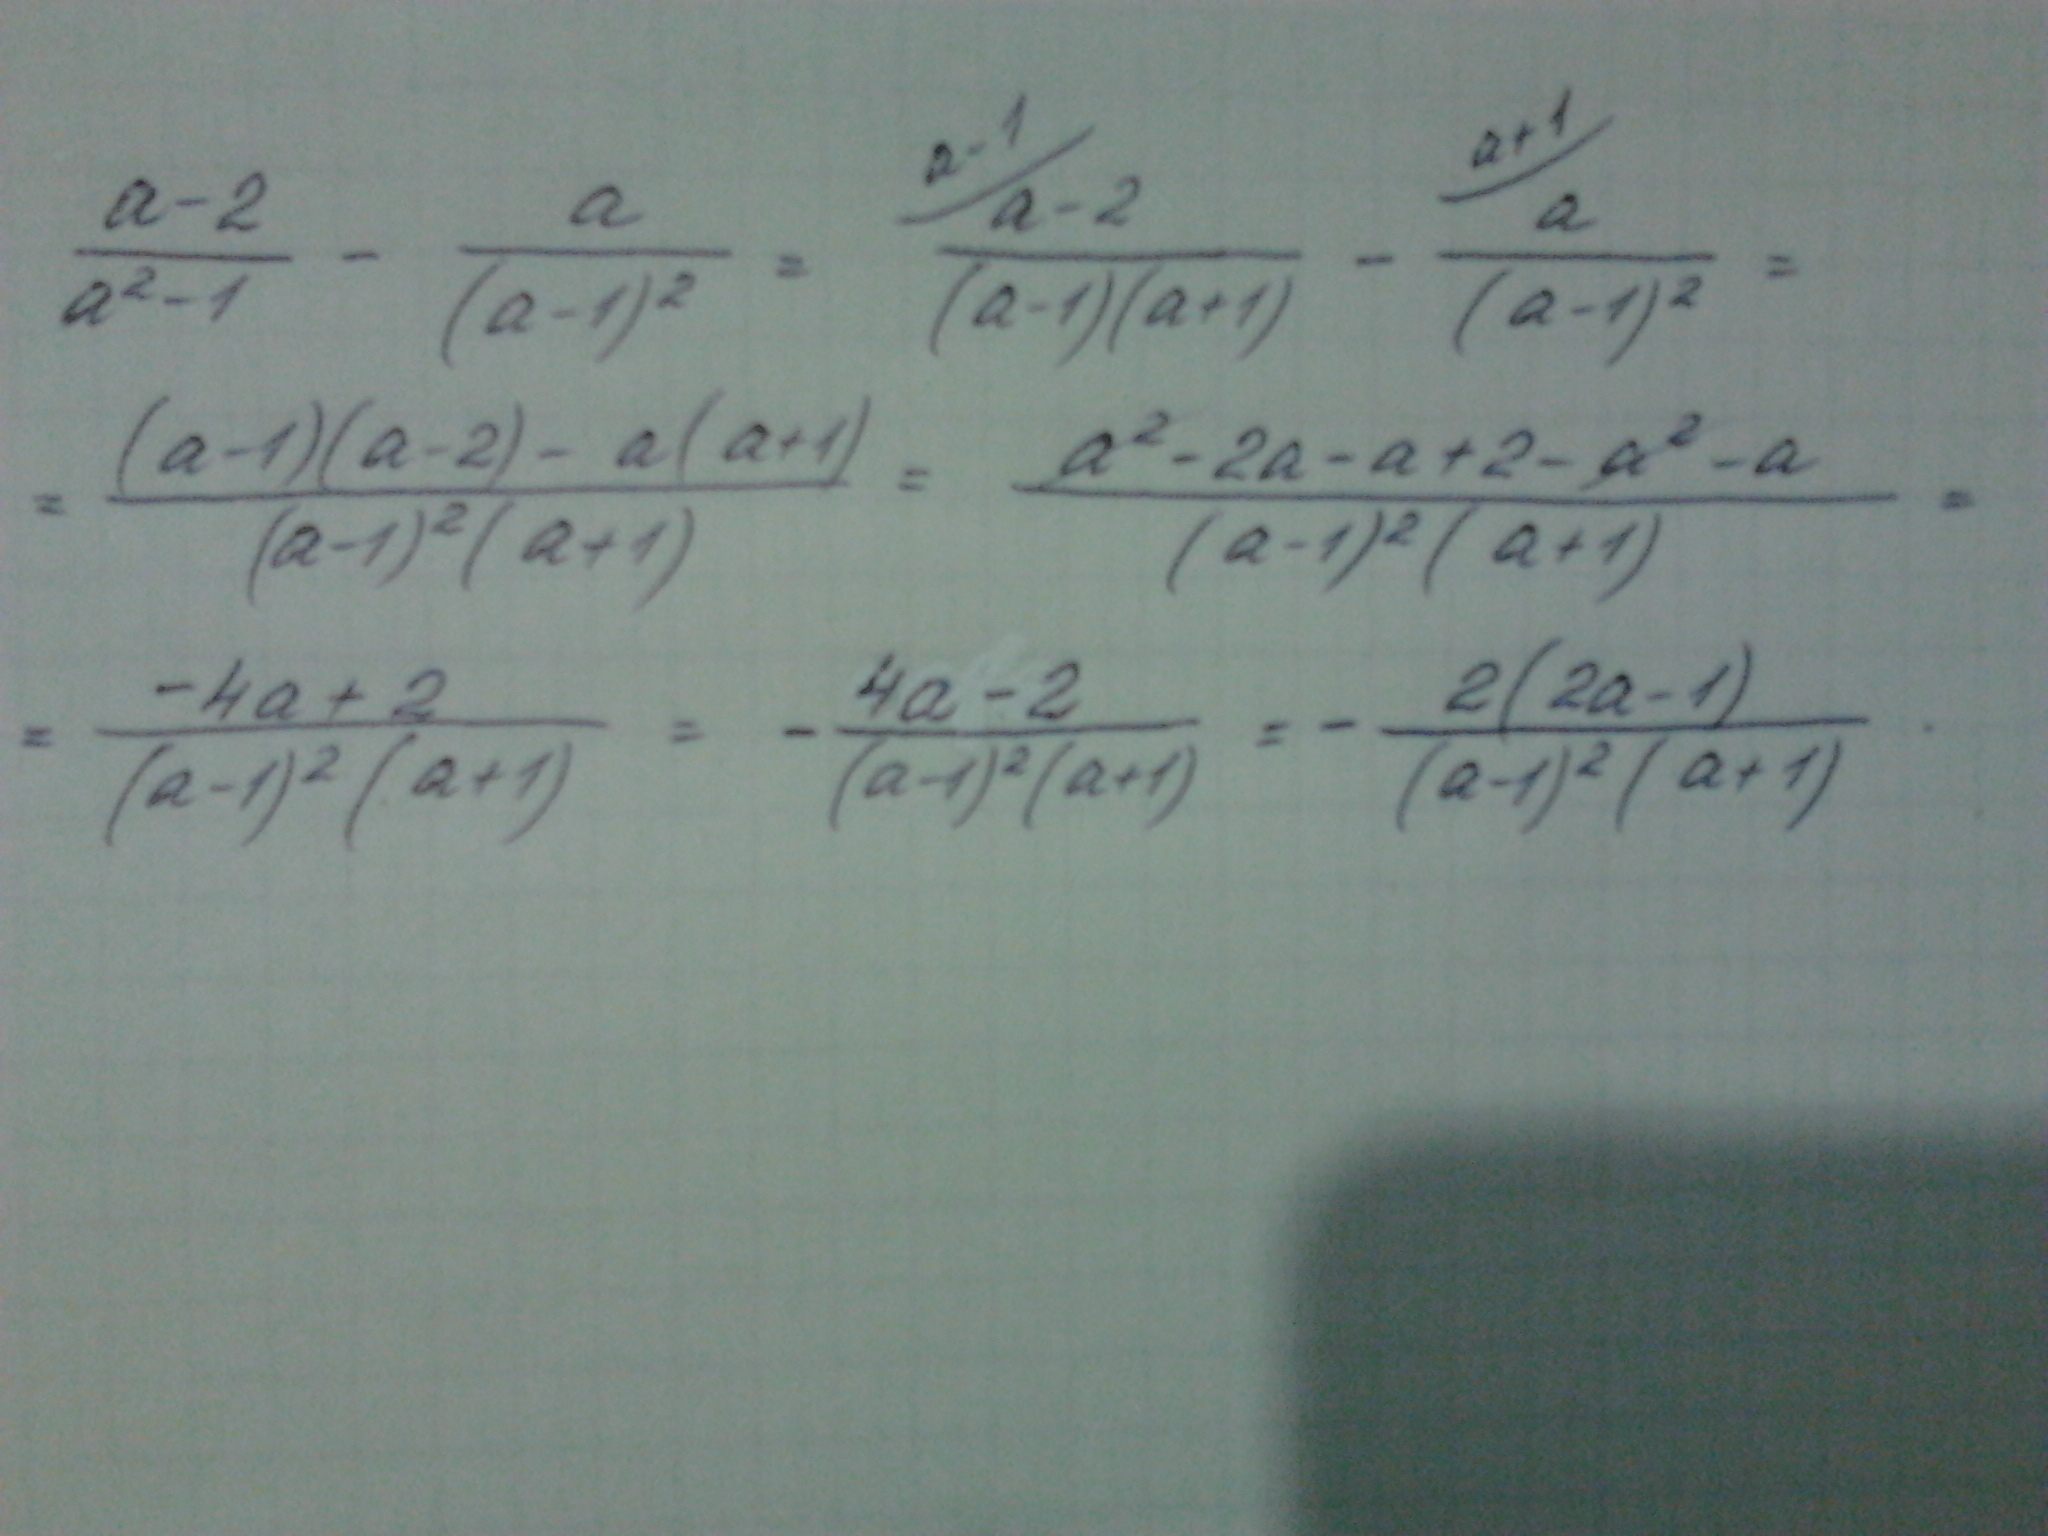 \frac{a-2}{a^2-1} - \frac{a}{(a-1)^2} = \frac{a-2}{(a-1)(a+1)}^{a-1/} - \frac{a}{(a-1)^2}^{a+1/} =
= \frac{(a-1)(a-2) - a(a+1)}{(a-1)^2(a+1)} = \frac{a^2-2a-a+2-a^2-a}{(a-1)^2(a+1)} =
= \frac{-4a+2}{(a-1)^2(a+1)} = -\frac{4a-2}{(a-1)^2(a+1)} = -\frac{2(2a-1)}{(a-1)^2(a+1)}.